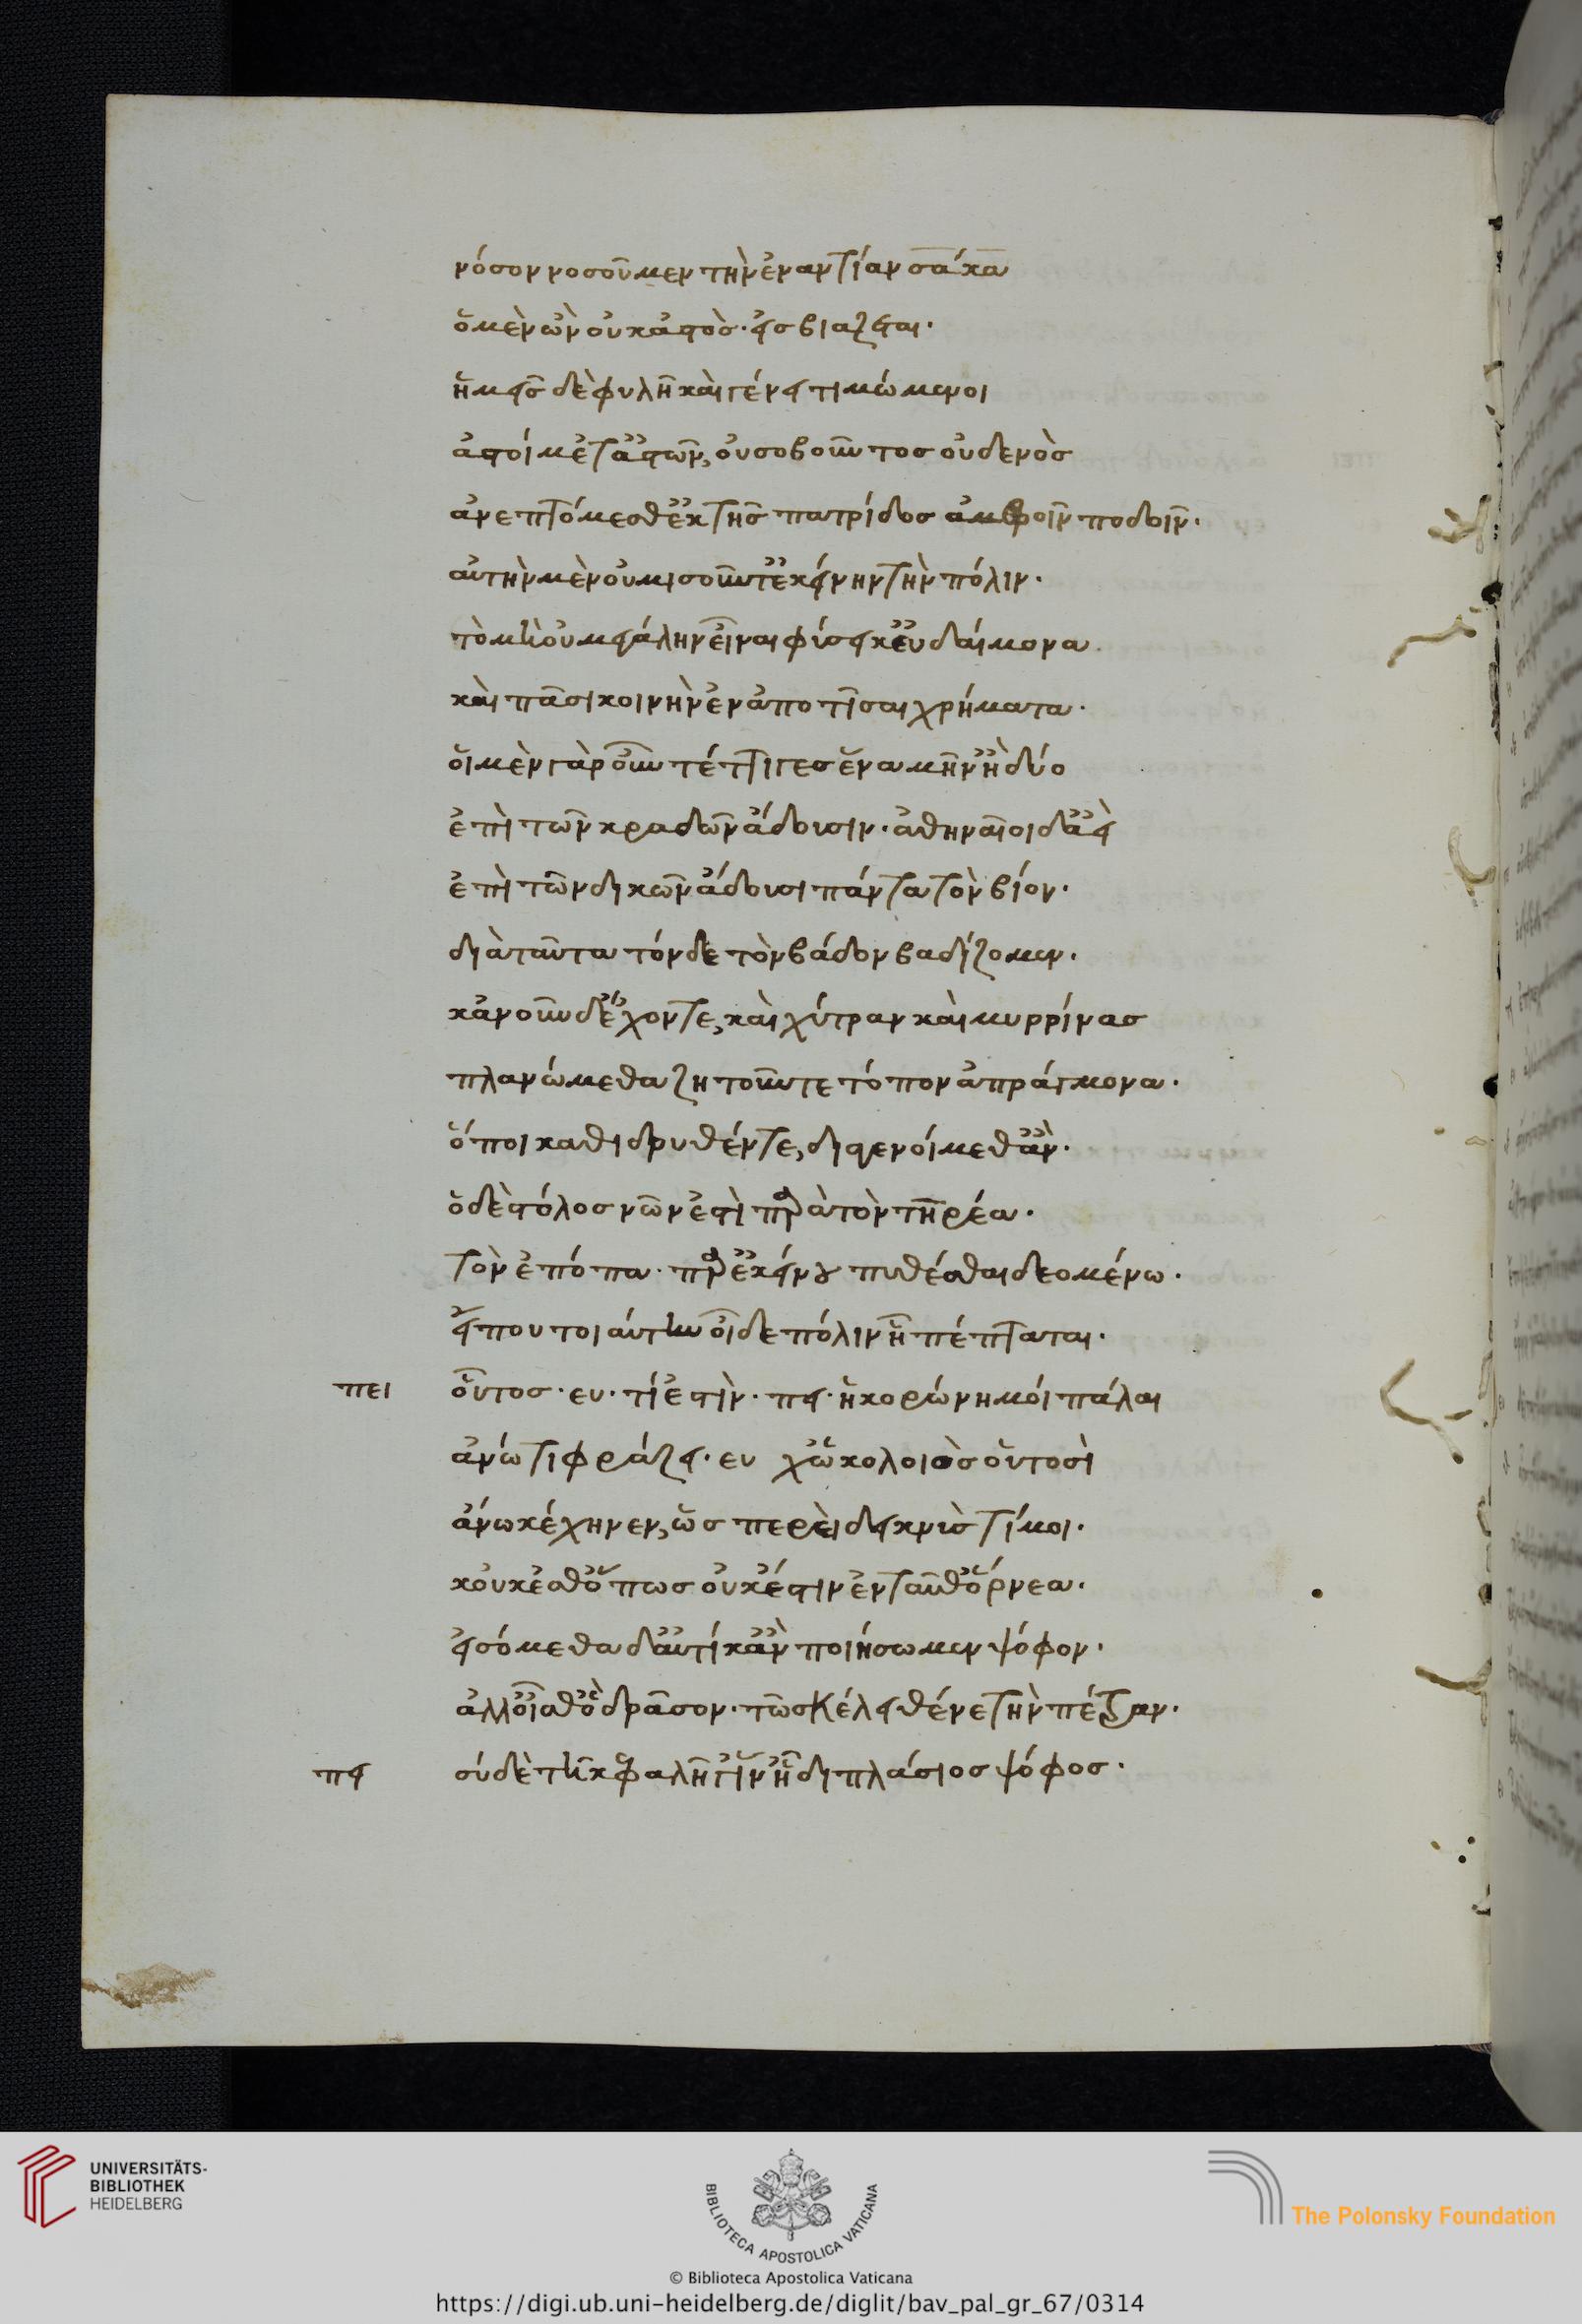 νόσον νοσοῦμεν τὴν ἐναντίαν σάκα
ὁ μὲν ὢν οὐκ ἀστὸσ· εἰσβιάζεται·
ἡμεῖσ δὲ φυλῆ καὶ γένει τιμώμενοι
ἀστοὶ μετ' ἀστῶν, οὐ σοβοῦντοσ οὐδενὸσ
ἀνεπτόμεσθ' ἐκ τῆσ πατρίδοσ ἀμφοῖν ποδοῖν·
αὐτὴν μὲν οὐ μισοῦντ' ἐκείνην τὴν πόλιν·
τὸ μὴ οὐ μεγάλην εἶναι φύσει κ' εὐδαίμονα
καὶ πᾶσι κοινὴν ἐναποτῖσαι χρήματα·
οἱ μὲν γὰρ οὖν τέττιγεσ ἕνα μῆν' ἢ δύο
ἐπὶ τῶν κραδῶν ἄδουσιν· ἀθηναῖοι δ' ἀεὶ
ἐπὶ τῶν δικῶν ἄδουσι πάντα τὸν βίον·
διὰ ταῦτα τόνδε τὸν βάδον βαδίζομεν·
κανοῦν δ' ἔχοντε, καὶ χύτραν καὶ μυρρίνασ
πλανώμεθα ζητοῦντε τόπον ἀπράγμονα·
ὅποι καθιδρυθέντε, διαγενοίμεθ' ἄν·
ὁ δὲ στόλοσ νῶν ἐστὶ παρὰ τὸν τηρέα·
τὸν ἔποπα· παρ' ἐκείνου πυθέσθαι δεομένω·
εἴ που τοιαύτην οἶδε πόλιν ἧ πέπταται·
πει οὗτοσ· ευ· τί ἐστὶν· πει· ἡ κορώνη μοὶ πάλαι
ἄνω τι φράζει· ευ χὠ κολοιὸσ οὑτοσὶ
ἄνω κέχηνεν, ὡσπερεὶ δεικνύσ τί μοι·
κοὐκ ἔσθ' ὅπωσ οὐκ ἔστιν ἐνταῦθ' ὄρνεα·
εἰσόμεθα δ' αὐτίκ' ἂν ποιήσωμεν ψόφον·
ἀλλ' οἶσθ' ὃ δρᾶσον· τῶ σκέλει θένε τὴν πέτραν·
πει σὺ δὲ τῆ κεφαλῆ γ' ἵν' ἦ διπλάσιοσ ψόφοσ·
UNIVERSITÄTS-
BIBLIOTHEK
HEIDELBERG
BIBLIOTECA APOSTOLICA VATICANA
The Polonsky Foundation
© Biblioteca Apostolica Vaticana
https://digi.ub.uni-heidelberg.de/diglit/bav_pal_gr_67/0314